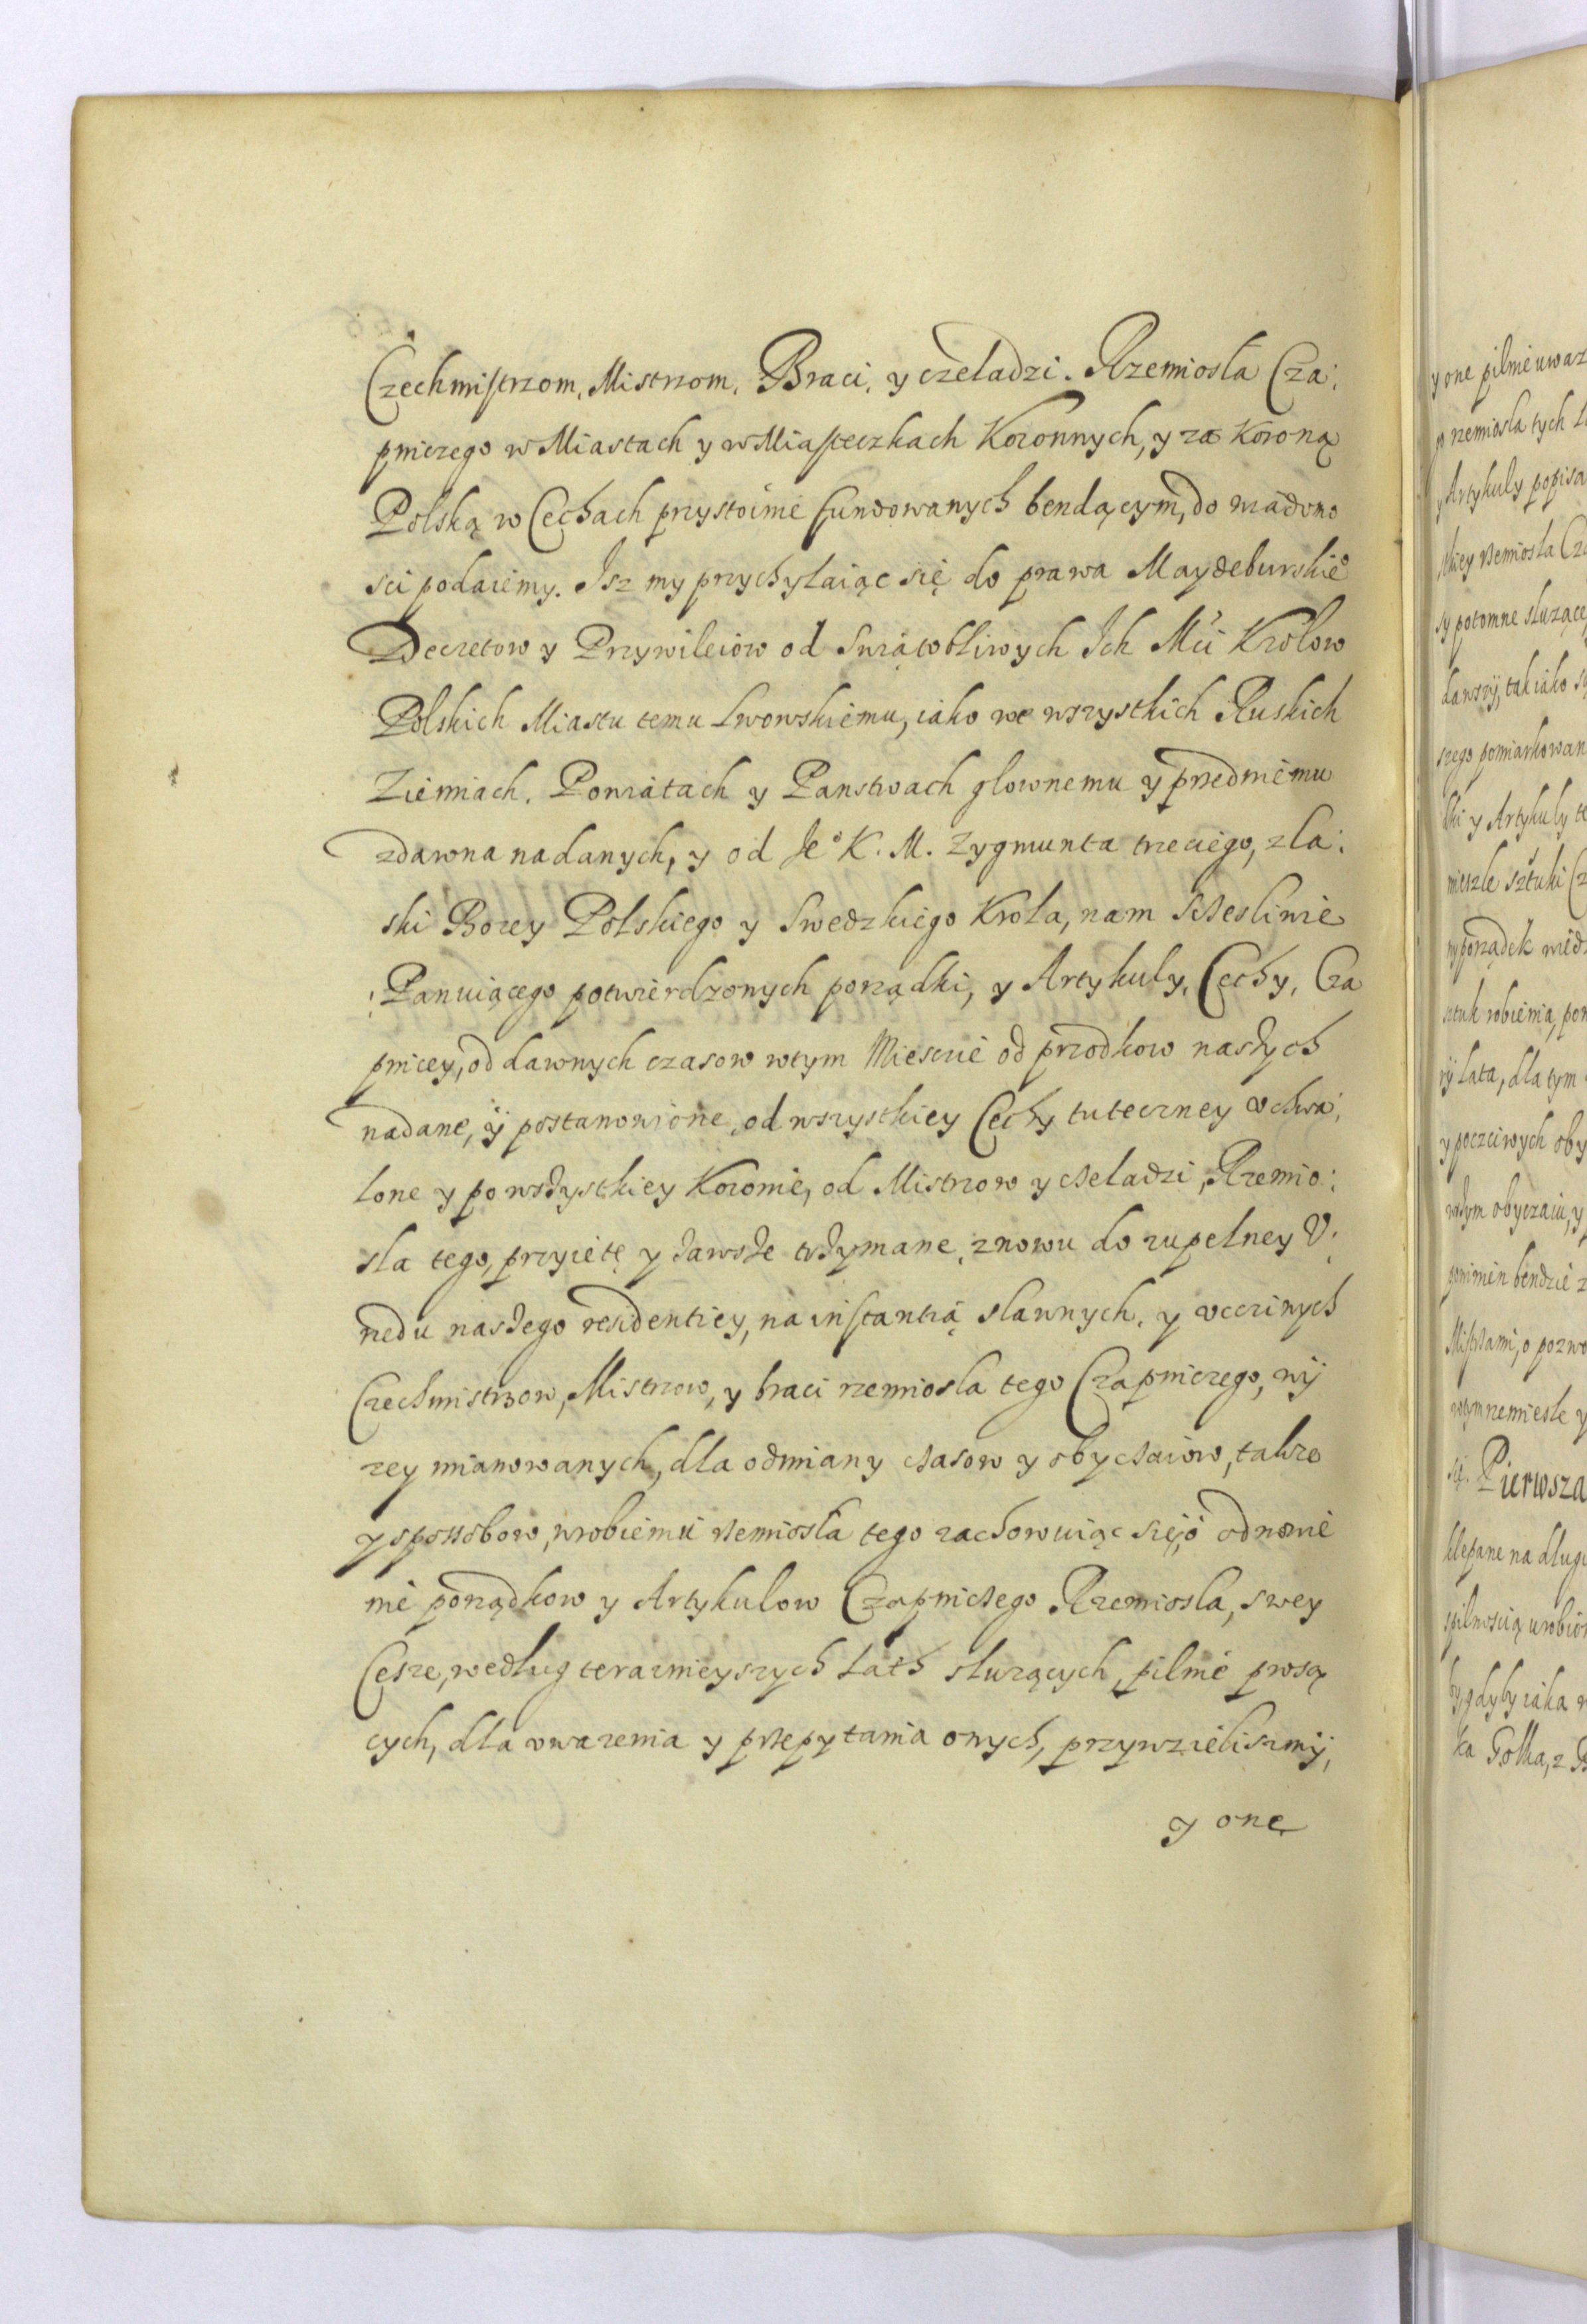 Czechmistrzom, Mistrzom, Braci, y czeladzi. Rzemiosła Cza:
pniczego w Miastach y w Miasteczkach Koronnych, y za Koroną
Polską w Cechach przystoinie fundowanych bendącym, do wiadomo
sci podaiemy. Isz my przychylaiąc się do prawa Maydeburskie°
Decretow y Przywileiow od Swiątobliwych Ich Mci Krolow
Polskich Miastu temu Lwowskiemu, iako we wszystkich Ruskich
Ziemiach, Powiatach y Panstwach glownemu y przedniemu
zdawna nadanych, y od Je° K. M. Zygmunta trzeciego, z la:
ski Bozey Polskiego y Swedzkiego Krola, nam sczesliwie
Panuiącego potwierdzonych porządki, y Artykuly, Cechy, Cza
pnicey, od dawnych czasow wtym Miescie od przodkow naszych
nadane, ÿ postanowione, od wszystkiey Cechy tuteczney uchwa:
lone y po wszystkiey Koronie, od Mistrzow y czeladzi, Rzemio:
sla tego, przyietę y zawsze trzymane, znowu do zupelney U:
rzedu naszego residentiey, na instantią slawnych, y uccziwych
Czechmistrzow, Mistrzow, y braci rzemiosla tego Czapniczego, wÿ
zey mianowanych, dla odmiany czasow y obyczaiow, takze
y sposobow, w robieniu rzemiosla tego zachowuiąc się, o odnowie
nie porządkow y Artykulow Czapniczego Rzemiosla, swey
Cesze, według teraznieyszych Lath sluzących, pilnie prosą
cych, dla uwazenia y przepytania onych, przywzieliszmÿ,
y onę
y one pilnie uwaz
rzemiosla tych
y Artykuly popisa
skiey rzemiosla Cza
sy potomne sluzące
tak iako
szego pomiarkowan
y Artykuly te
sztuki
porządek miedz
sztuk robienia, por
lata, dla tym
y poczciwych oby
obyczaiu, y
bendzie z
Mistrzami, o pozwo
wtym rzemiesle y
się. Pierwsza
klepane na dlug
spilnoscią urobio
by gdyby iaka
ka Golka, z